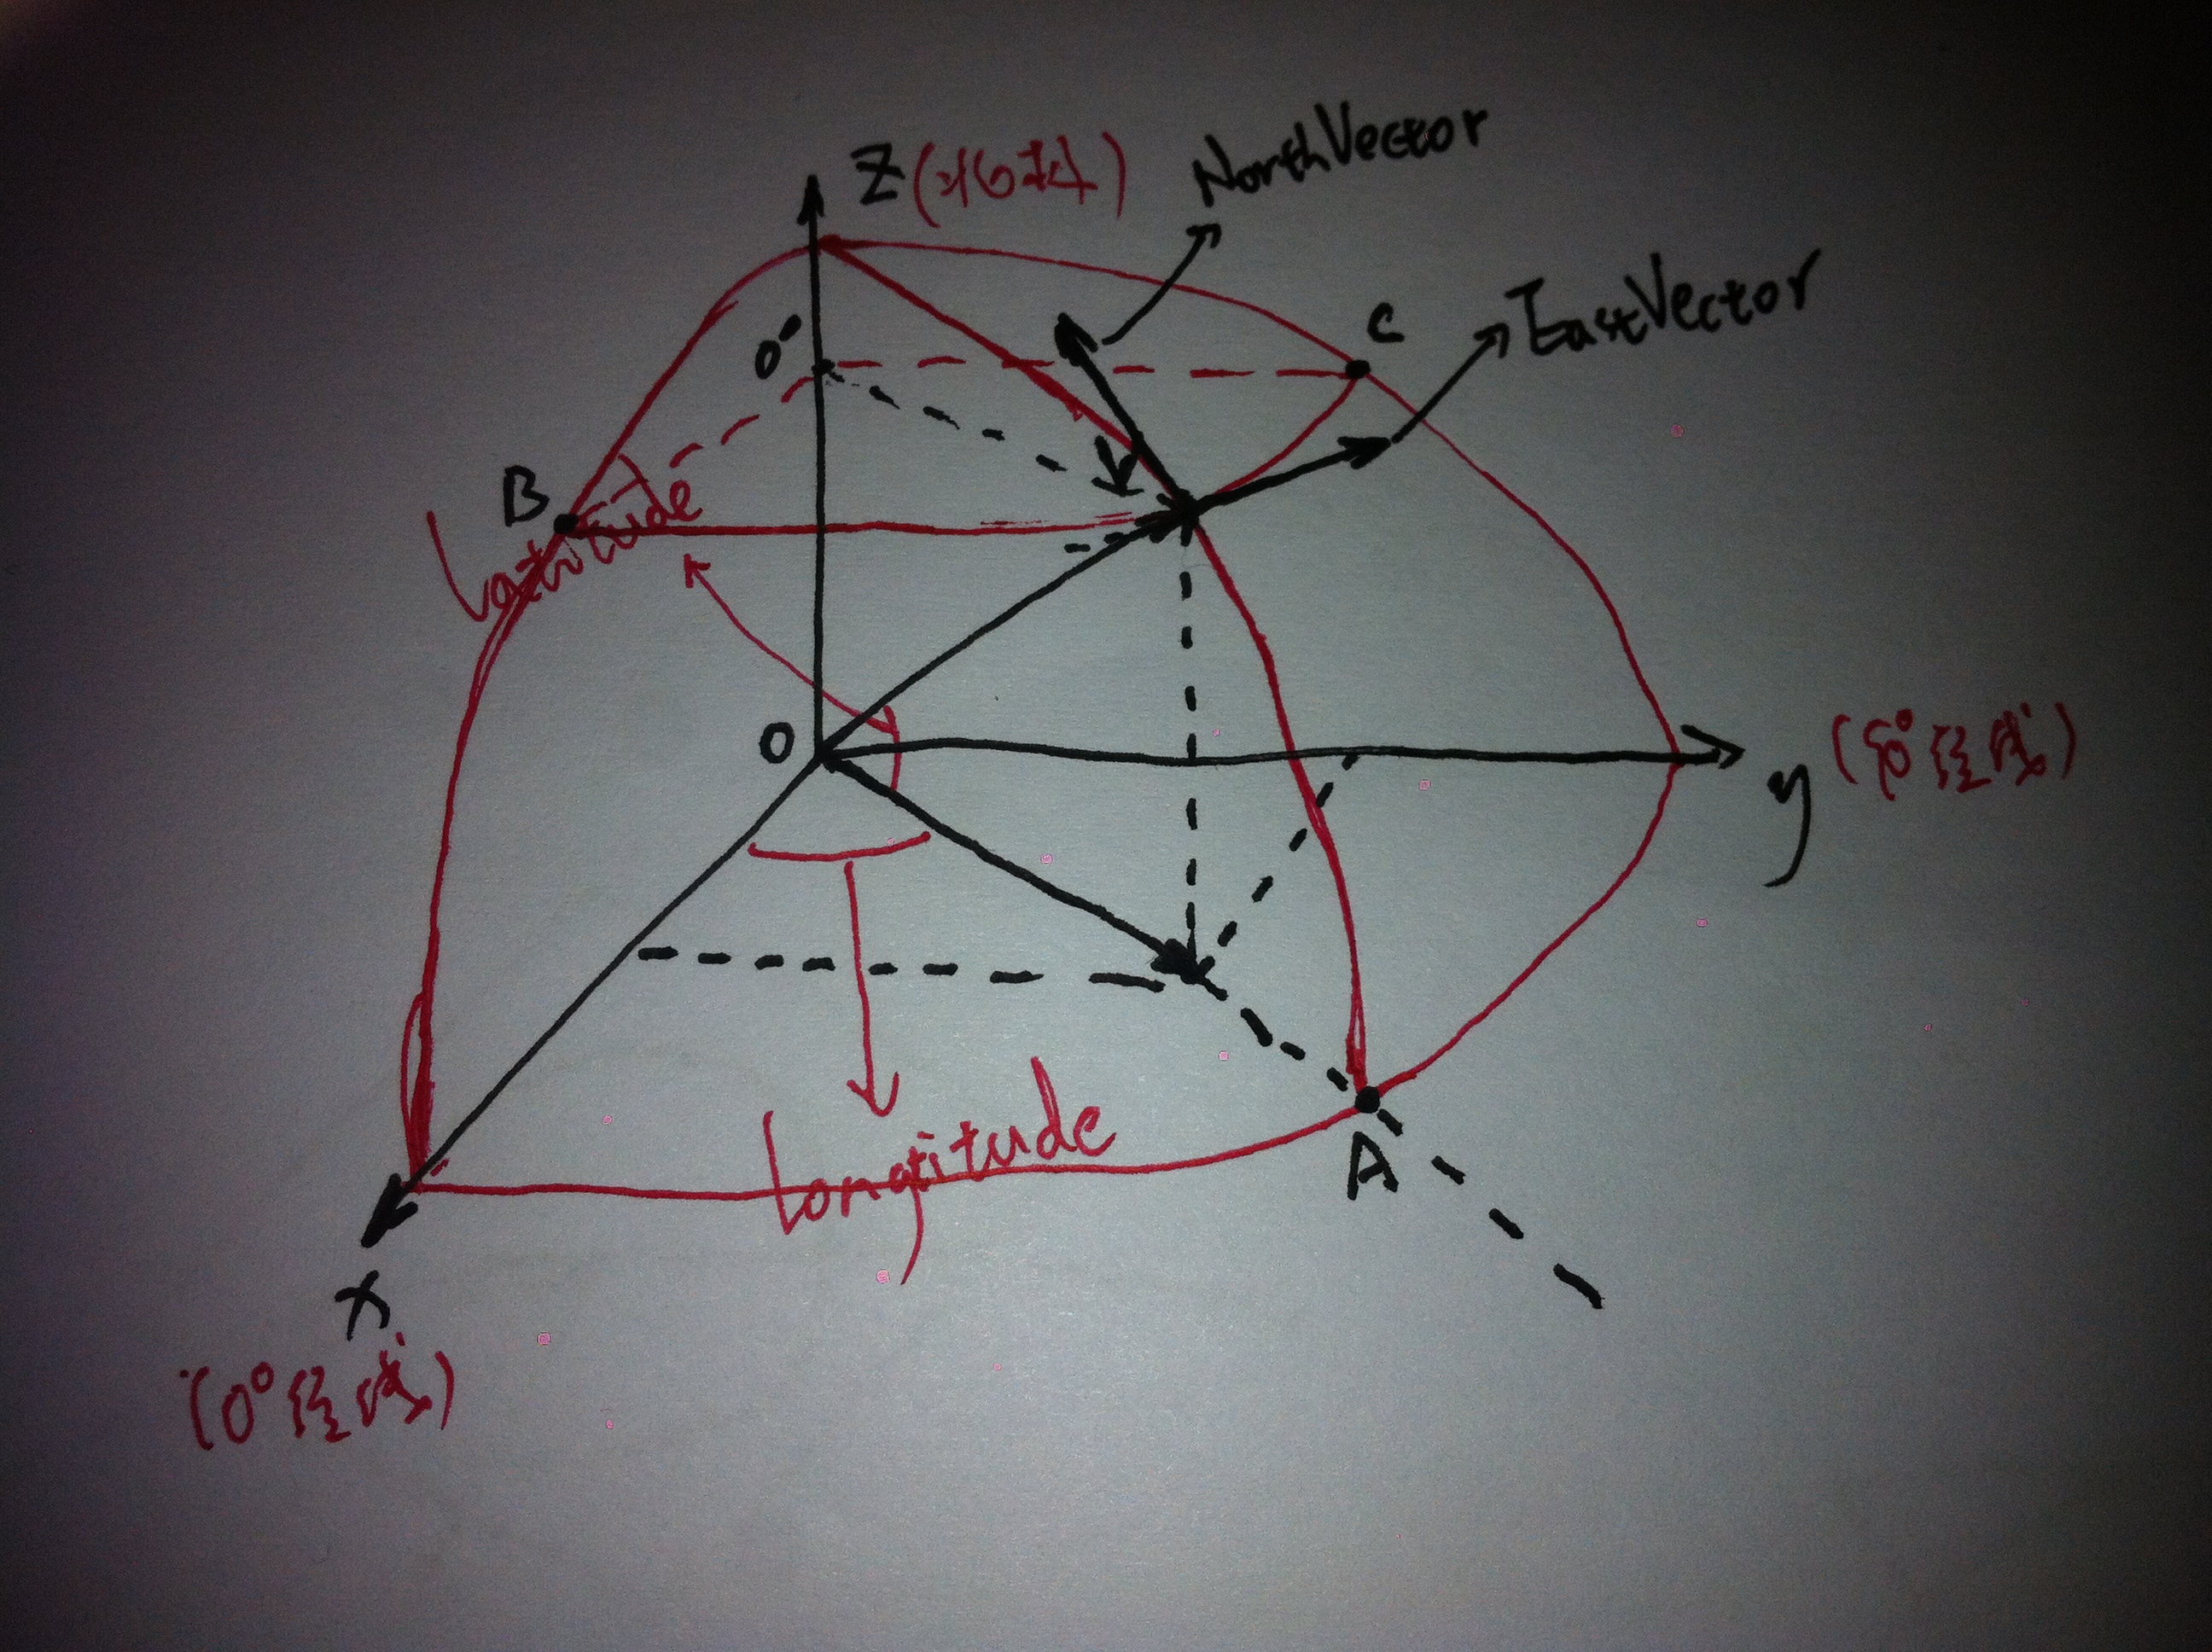 Z(北极)
NorthVector
EastVector
C
O'
B
Latitude
O
y (90°经线)
Longitude
A
X
(0°经线)